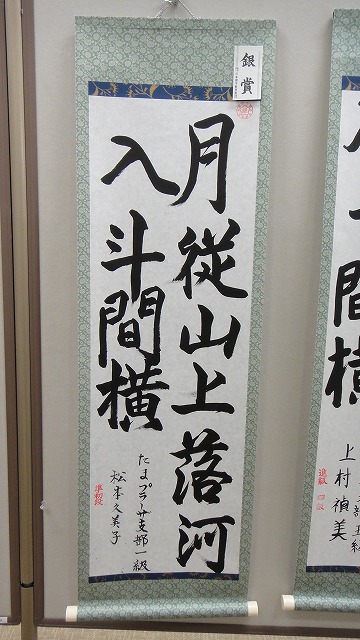 銀賞
月従山上落河
入斗間横
たまプラーザ支部一級
松本久美子
準初段
上村禎美
進級